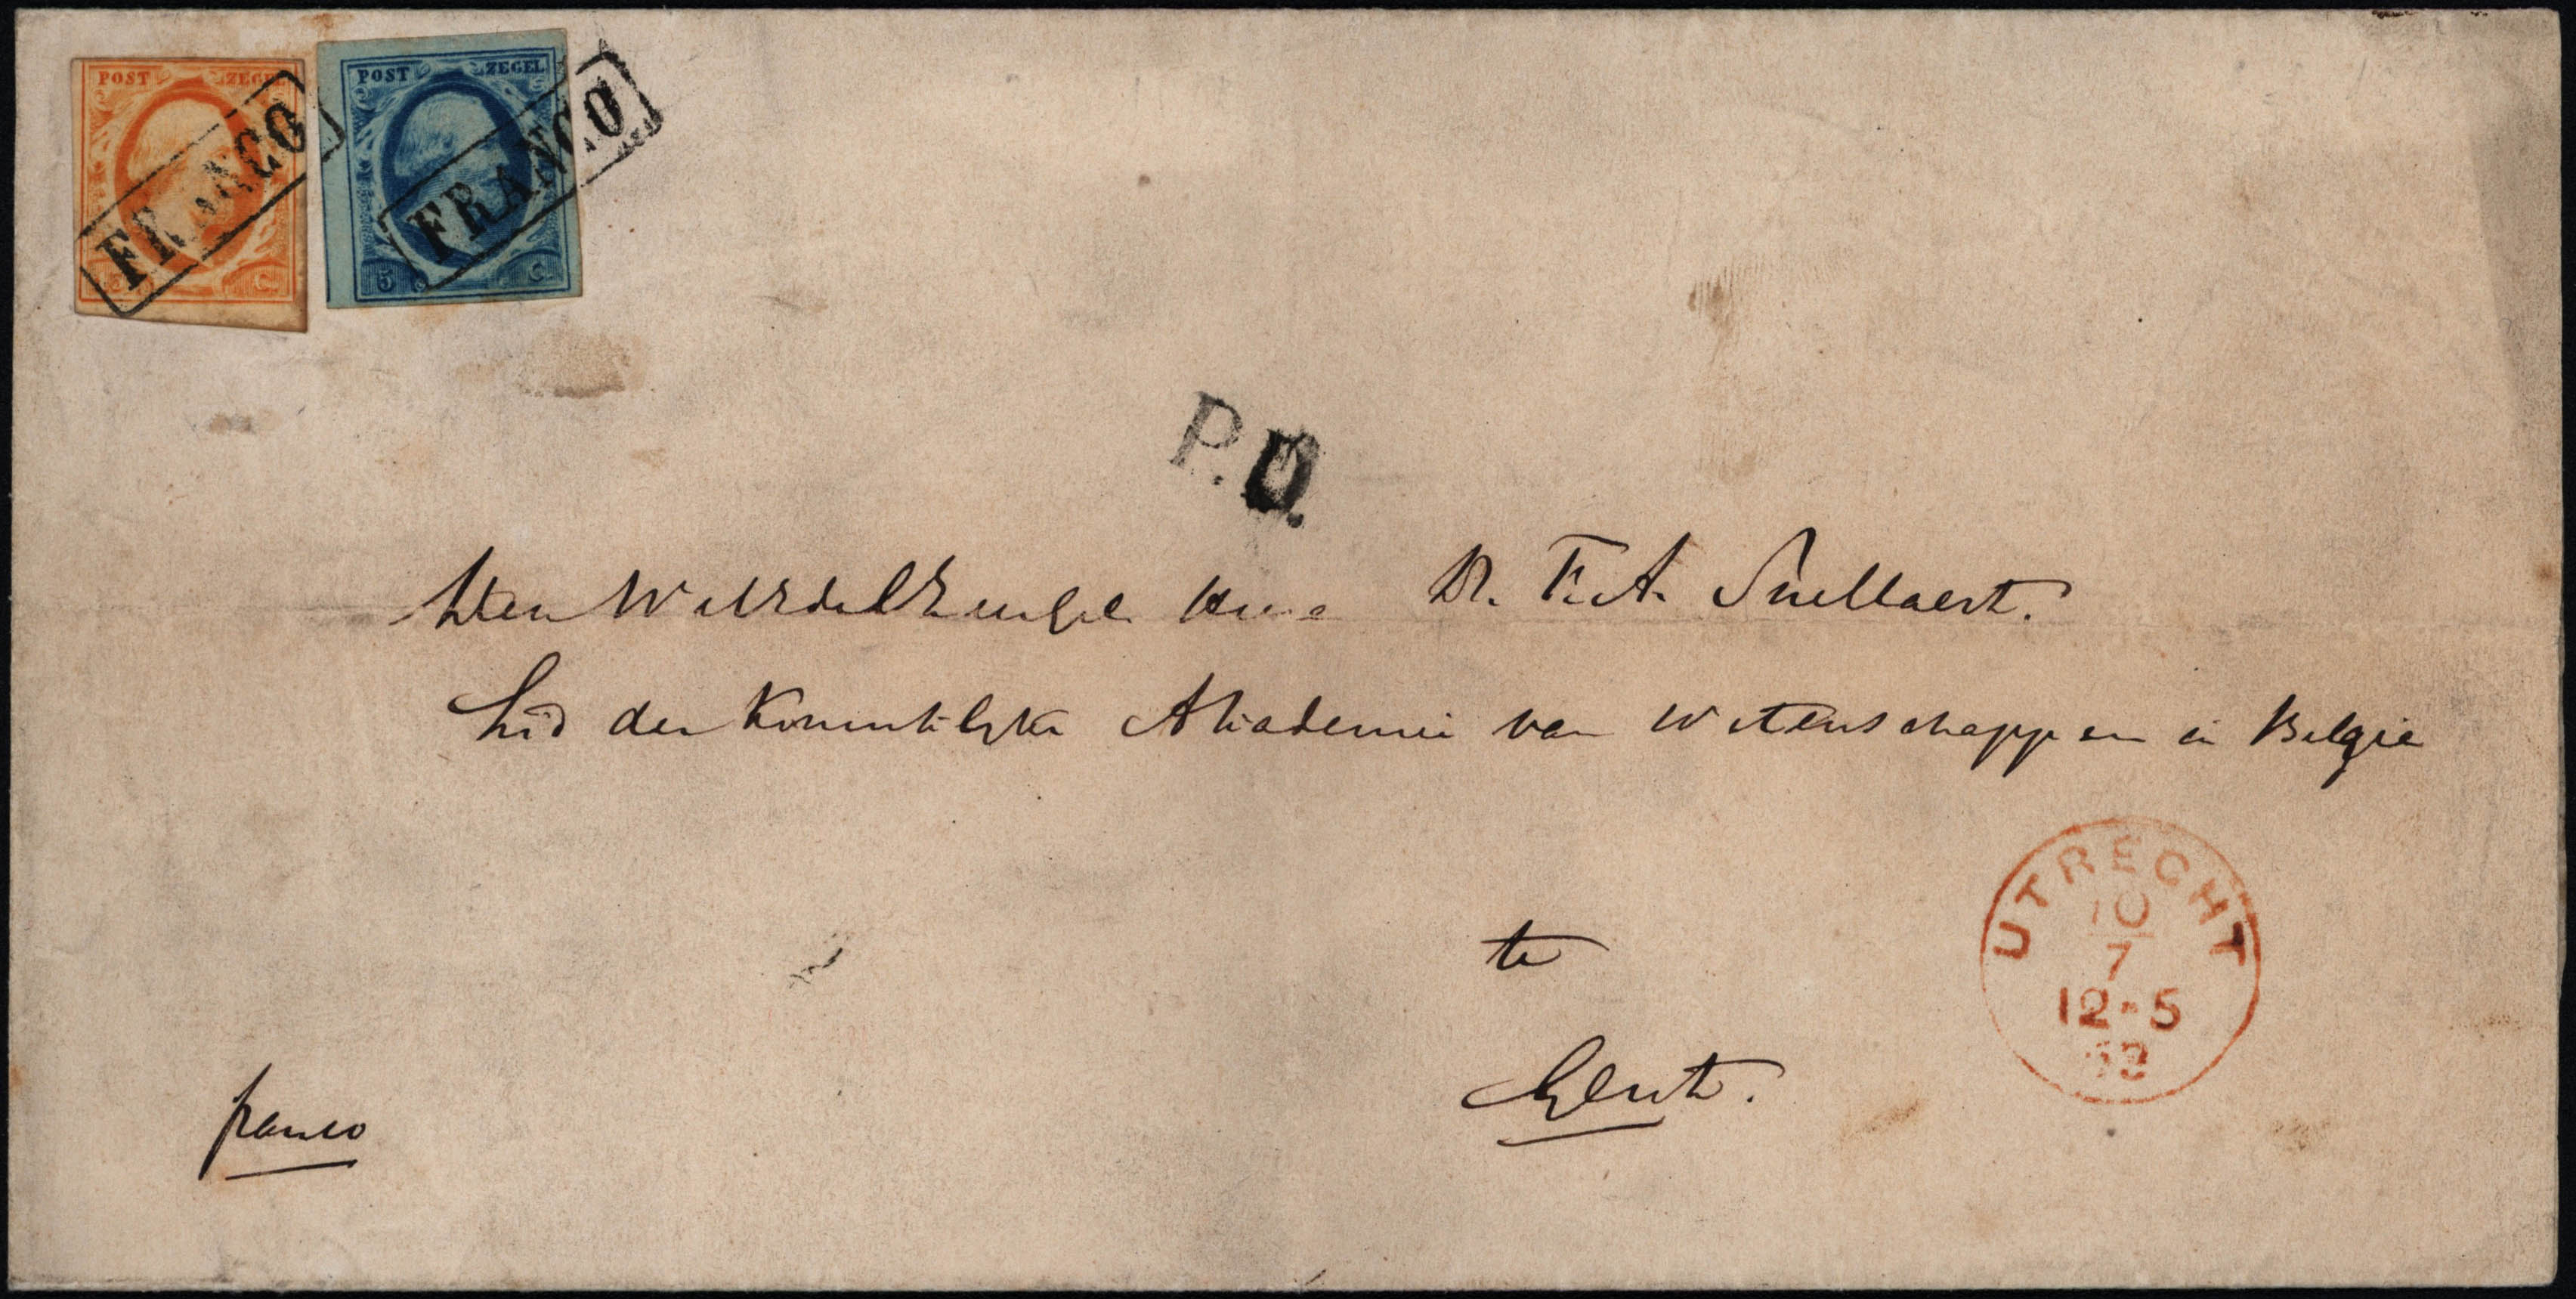 POST ZEGEL
FRANCO
POST ZEGEL
FRANCO
5 C.
P.D.
Den WelEdelZeergel. Heer Dr. F. A. Snellaert.
Lid der Koninklijke Akademie van Wetenschappen in België
te
Gent.
franco
UTRECHT
10
7
12-5